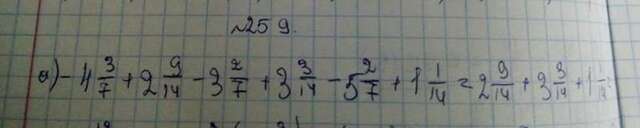 №259.
а) -4 3/7 + 2 9/14 - 3 2/7 + 3 3/14 - 5 2/7 + 1 1/14 = 2 9/14 + 3 3/14 + 1 1/14